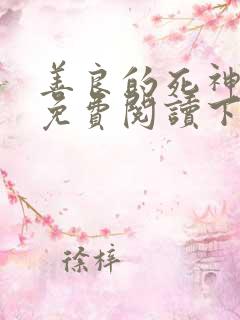 善良的死神
免費閱讀下
徐梓